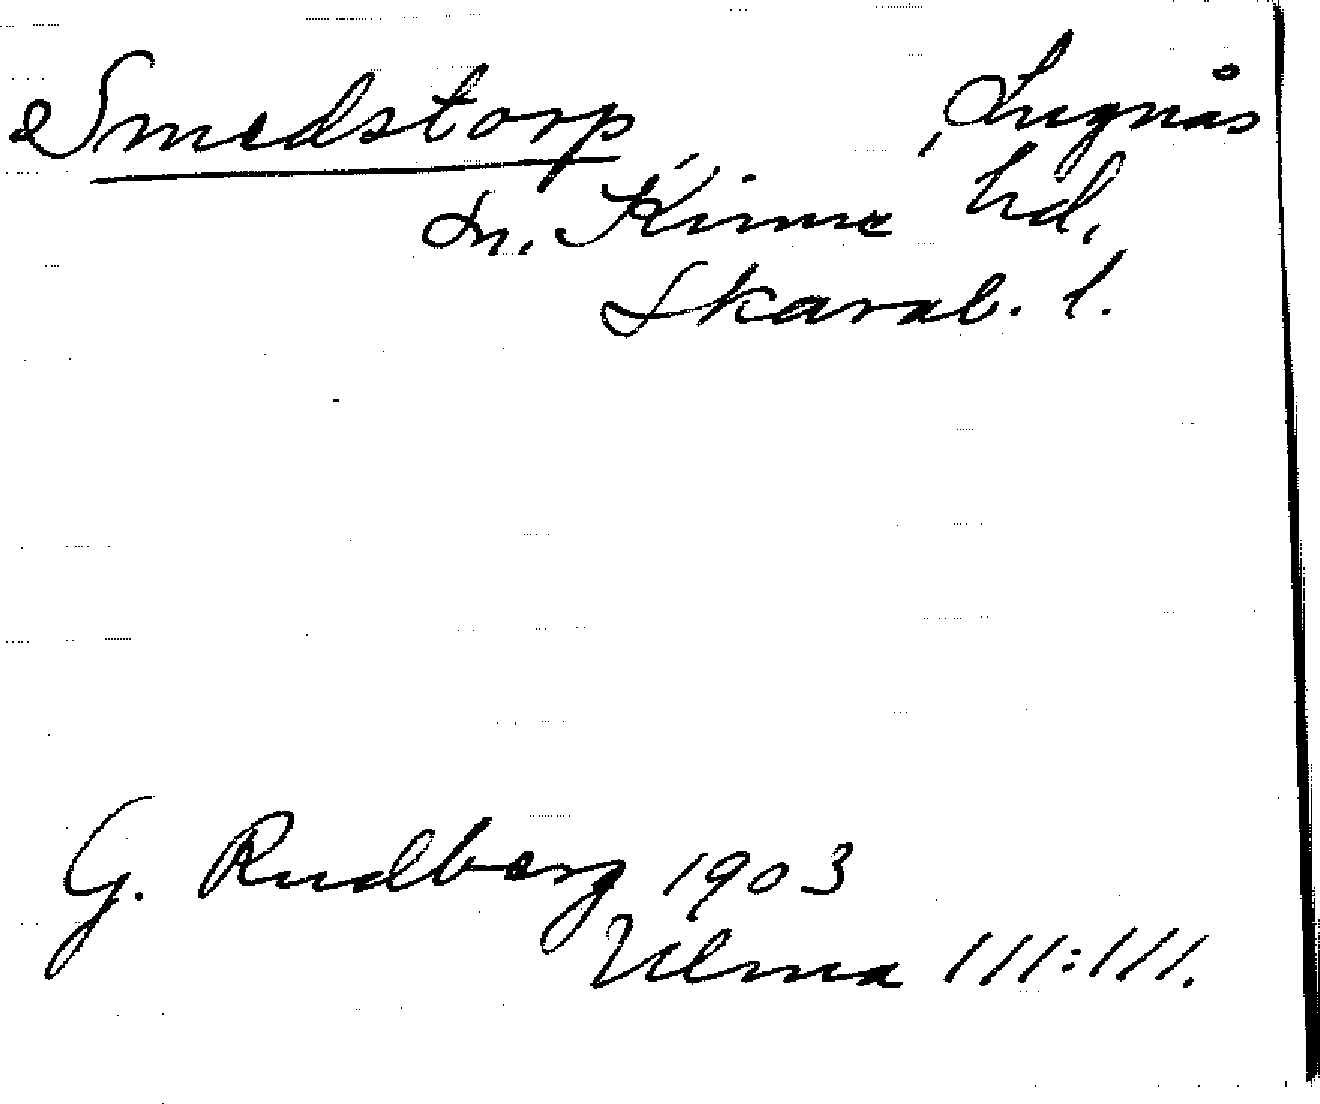 Smedstorp, Lugnås
sn. Kinne hd.
Skarab. l.
G. Rudberg 1903
Ulma 111:111.